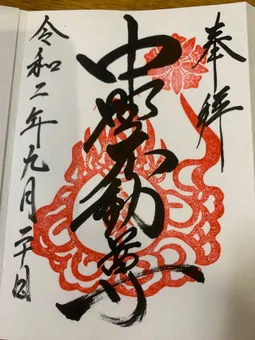 奉拝
中野不動尊
令和二年元月二十日